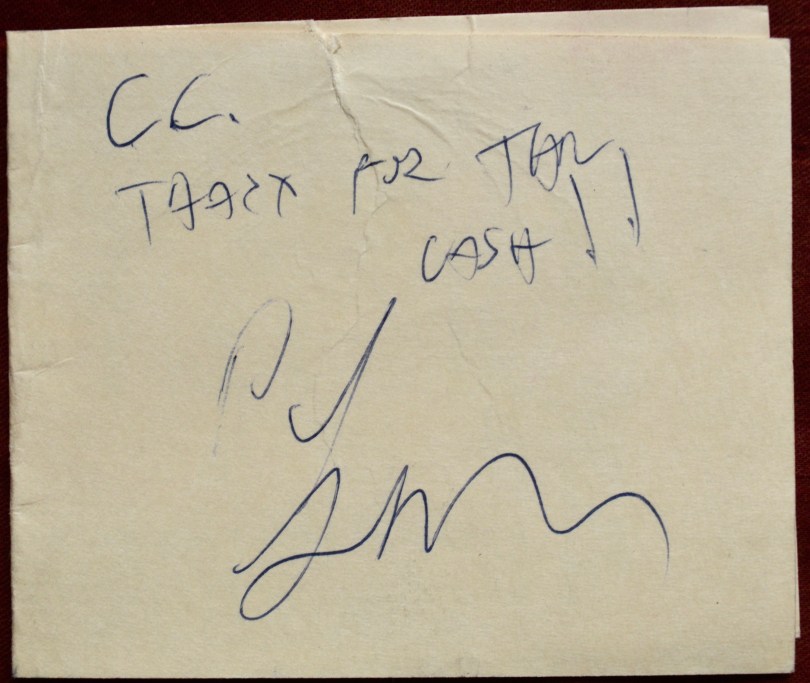 C.C.
THANX FOR THE
CASH!!